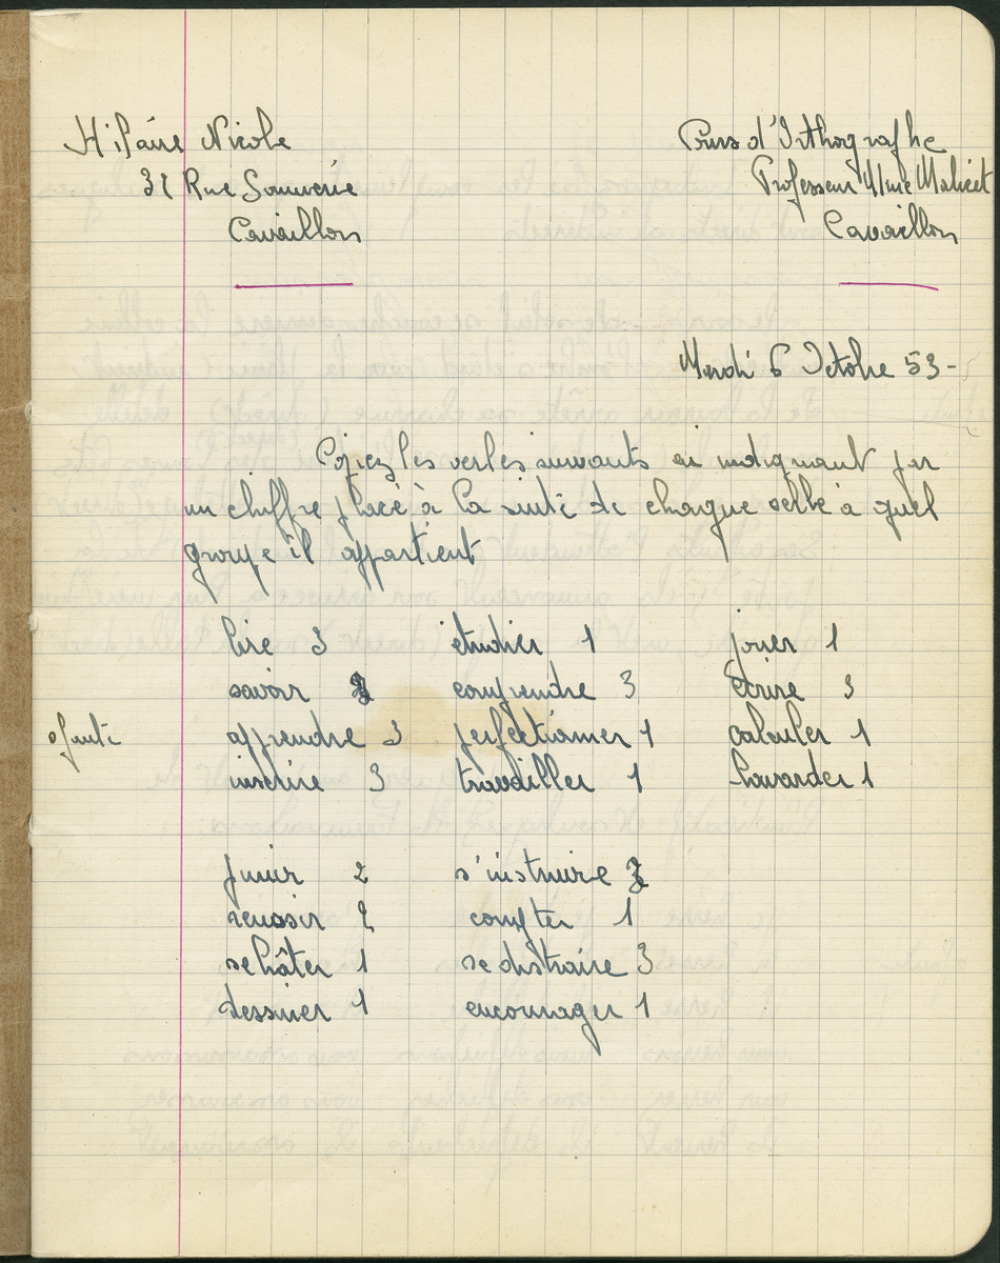 Hilaire Nicole
Cours d'Orthographe
Rue
Professeur Mme Malicet
Cavaillon
Cavaillon
Mardi 6 Octobre 53-
Copiez les verbes suivants en indiquant par
un chiffre placé à la suite de chaque verbe à quel
groupe il appartient
lire 3 étudier 1 jouer 1
savoir 3 comprendre 3 écrire 3
apprendre 3 perfectionner 1 calculer 1
inscrire 3 travailler 1 bavarder 1
punir 2 s'instruire 3
reussir 2 compter 1
se hâter 1 se distraire 3
dessiner 1 encourager 1